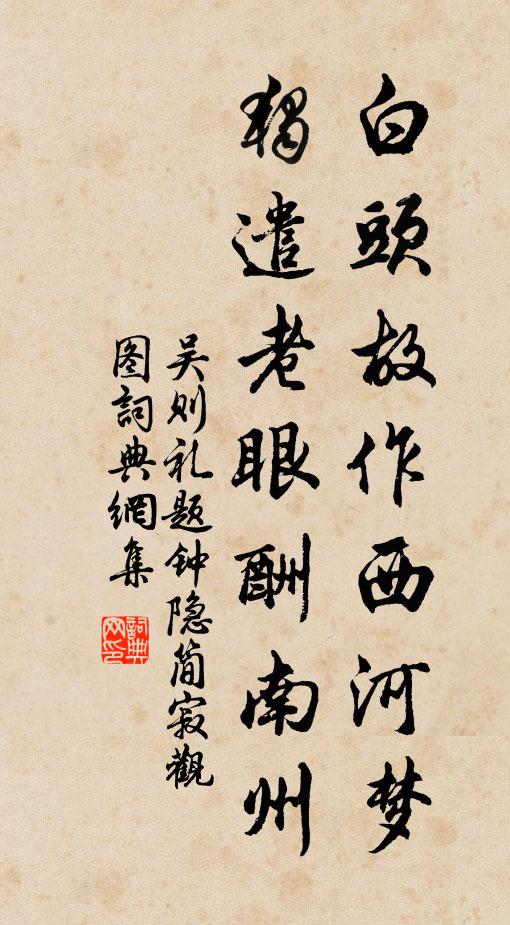 白頭故作西河梦
獨遣老眼酬南州
吴则礼题钟隐简寂觀
图詞典網集
詞典网印